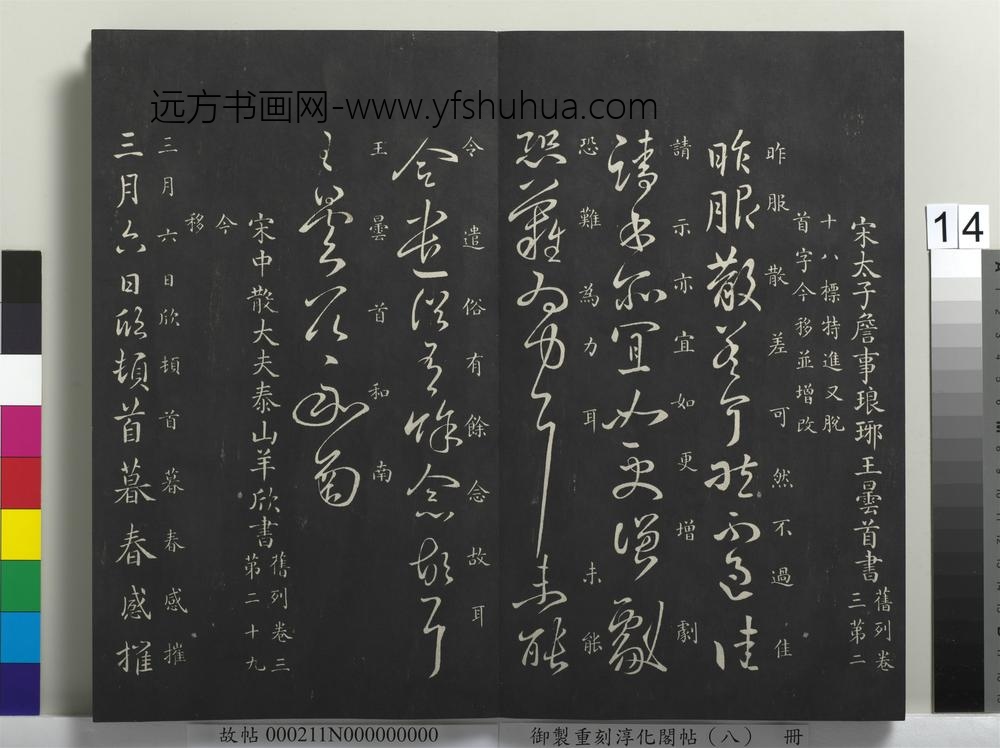 远方书画网-www.yfshuhua.com
宋太子詹事琅琊王曇首書
舊列卷
三第二
十八標特進又脫
首字今移並增改
昨服散差可然不過佳
昨服散差可然不過佳
請示亦宜如更增劇
請示亦宜如更增劇
恐難為力耳未能
恐難為力耳未能
令遣俗有餘念故耳
令遣俗有餘念故耳
王曇首和南
王曇首和南
宋中散大夫泰山羊欣書
舊列卷三
第二十九
今
移
三月六日欣頓首暮春感摧
三月六日欣頓首暮春感摧
14
故帖 000211N000000000
御製重刻淳化閣帖（八） 冊